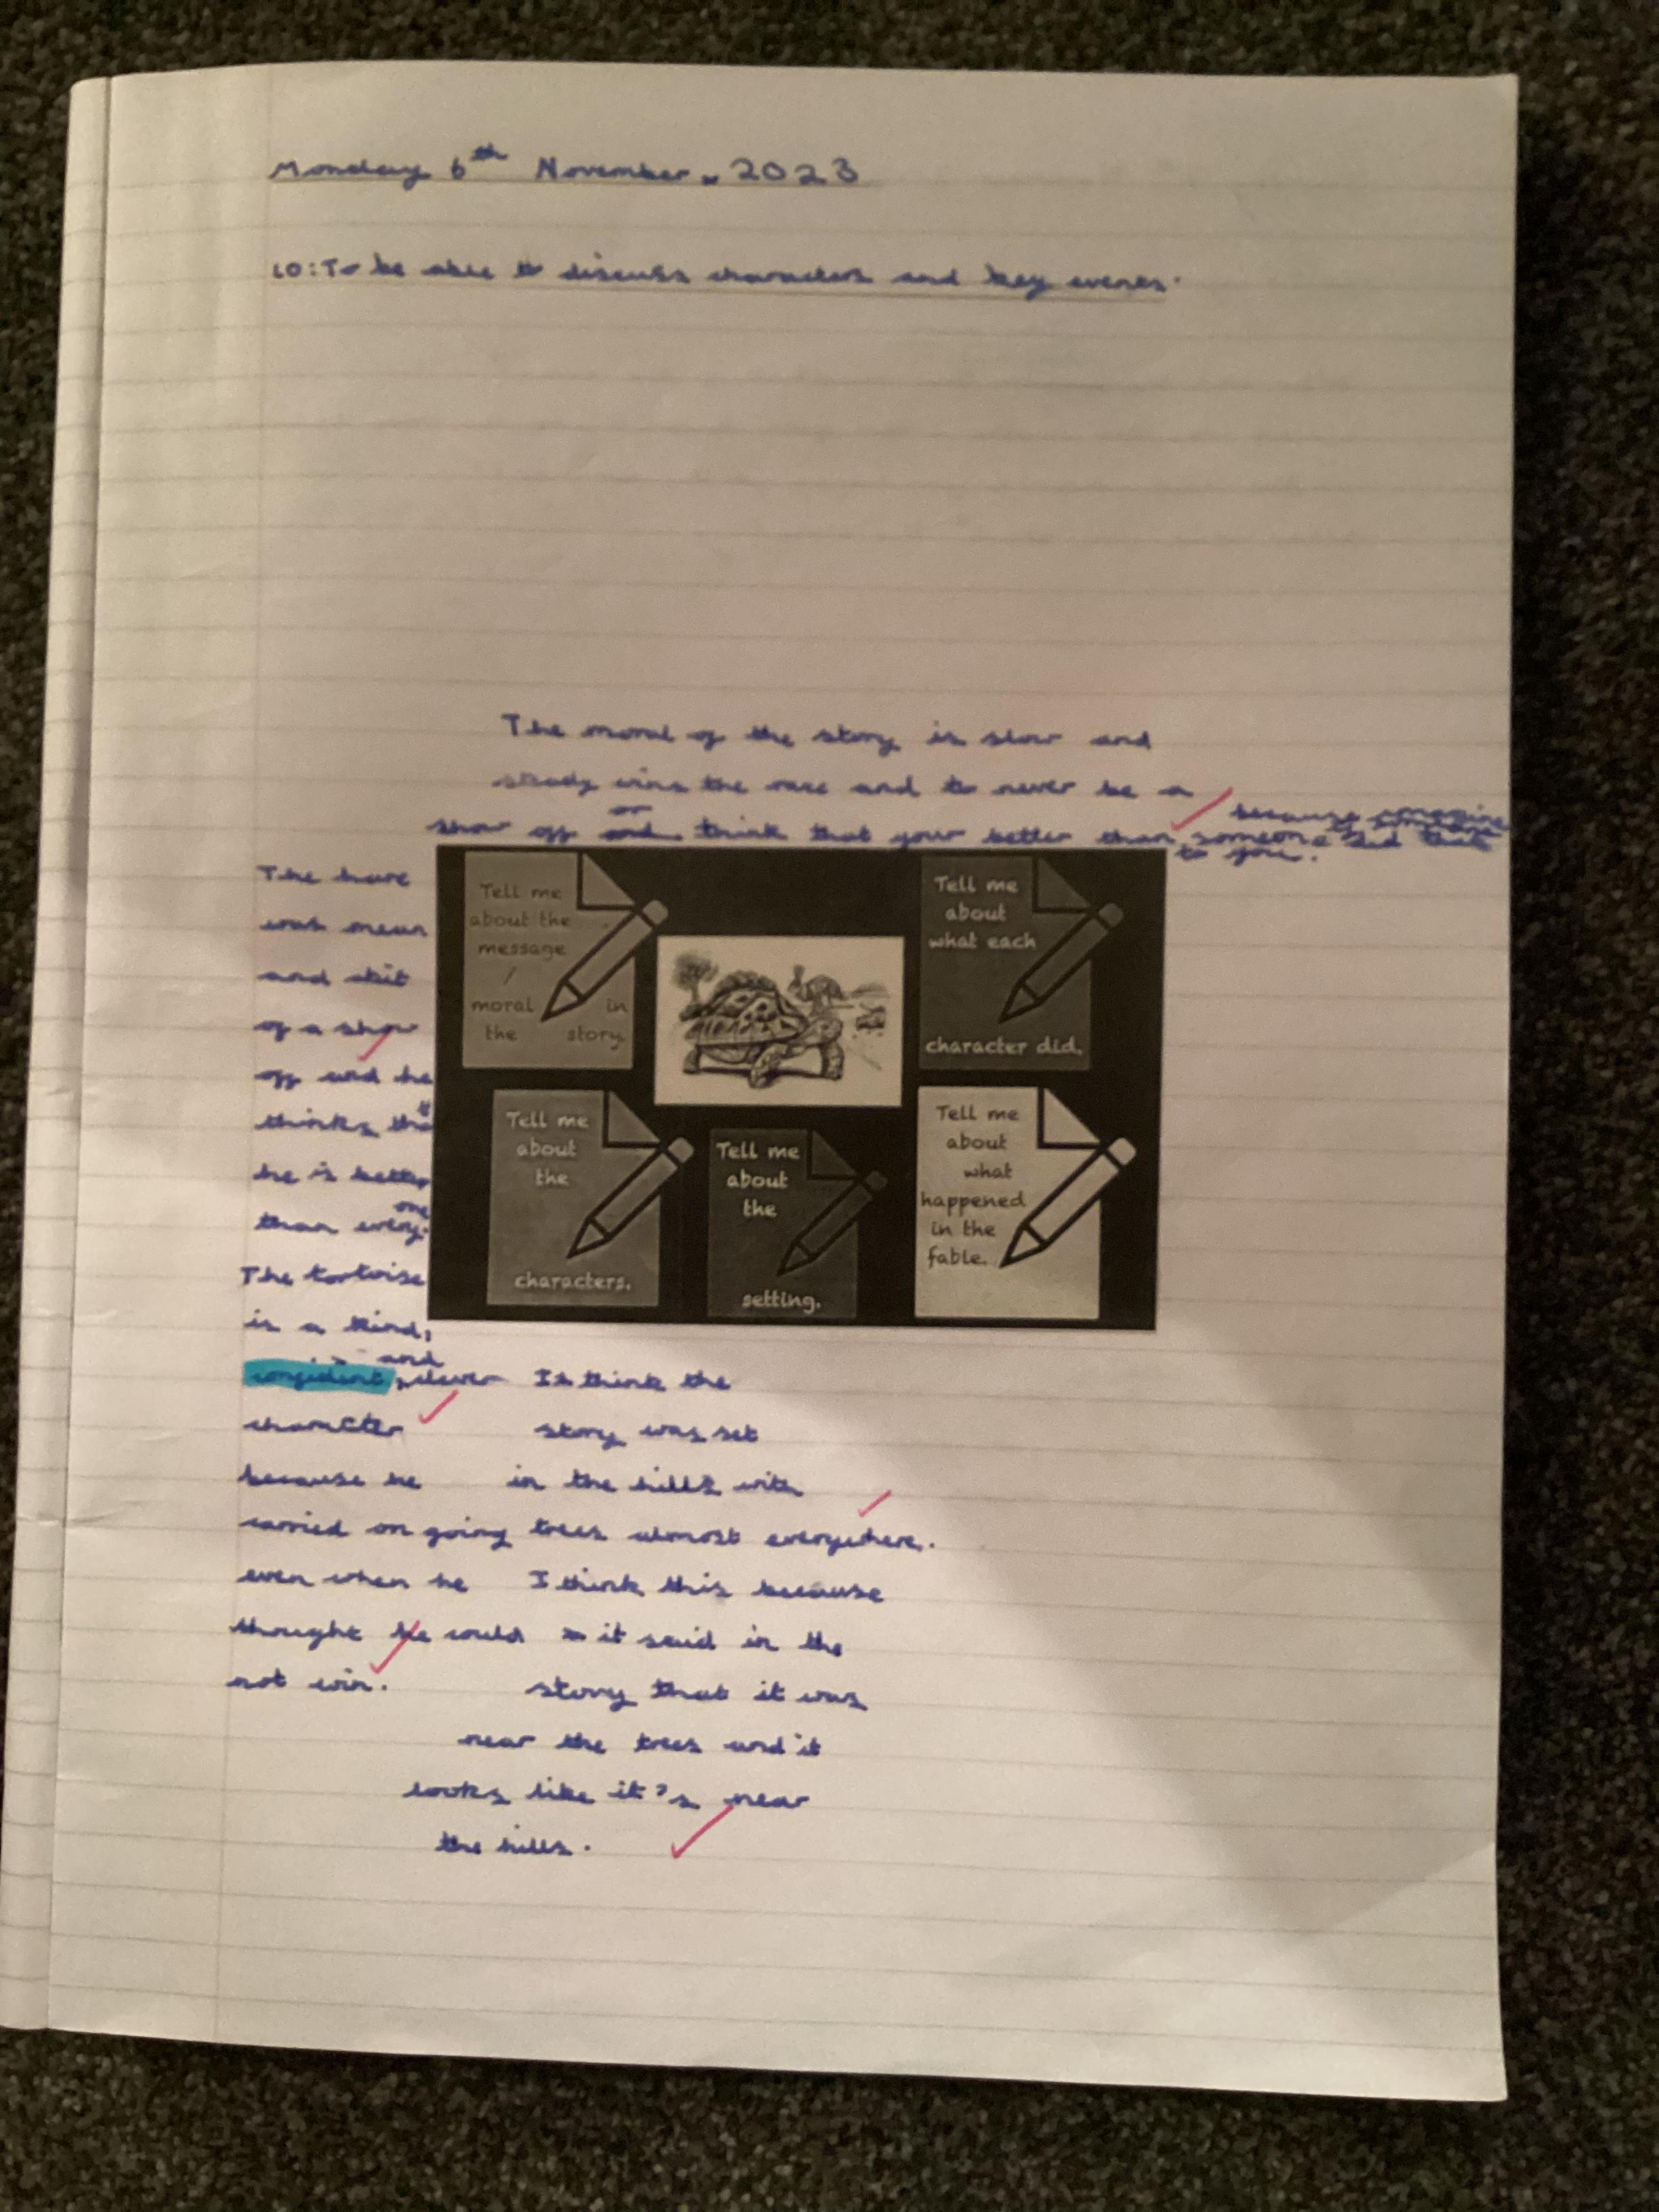 Monday 6th November 2023
LO: To be able to discuss characters and key events.
The moral of the story is slow and
steady wins the race and to never be a
show off or think that your better than someone
because imagine if someone did that
to you.
Tell me
about the
message
/
moral in
the story.
Tell me
about
what each
character did.
Tell me
about
the
characters.
Tell me
about
the
setting.
Tell me
about
what
happened
in the
fable.
The hare
was mean
and abit
of a show
off and he
thinks that
he is better
than everyone.
The tortoise
is a kind,
confident, and clever
character
because he
carried on going
even when he
thought he could
not win.
I think the
story was set
in the hills with
trees almost everywhere.
I think this because
it said in the
story that it was
near the trees and it
looks like it's near
the hills.